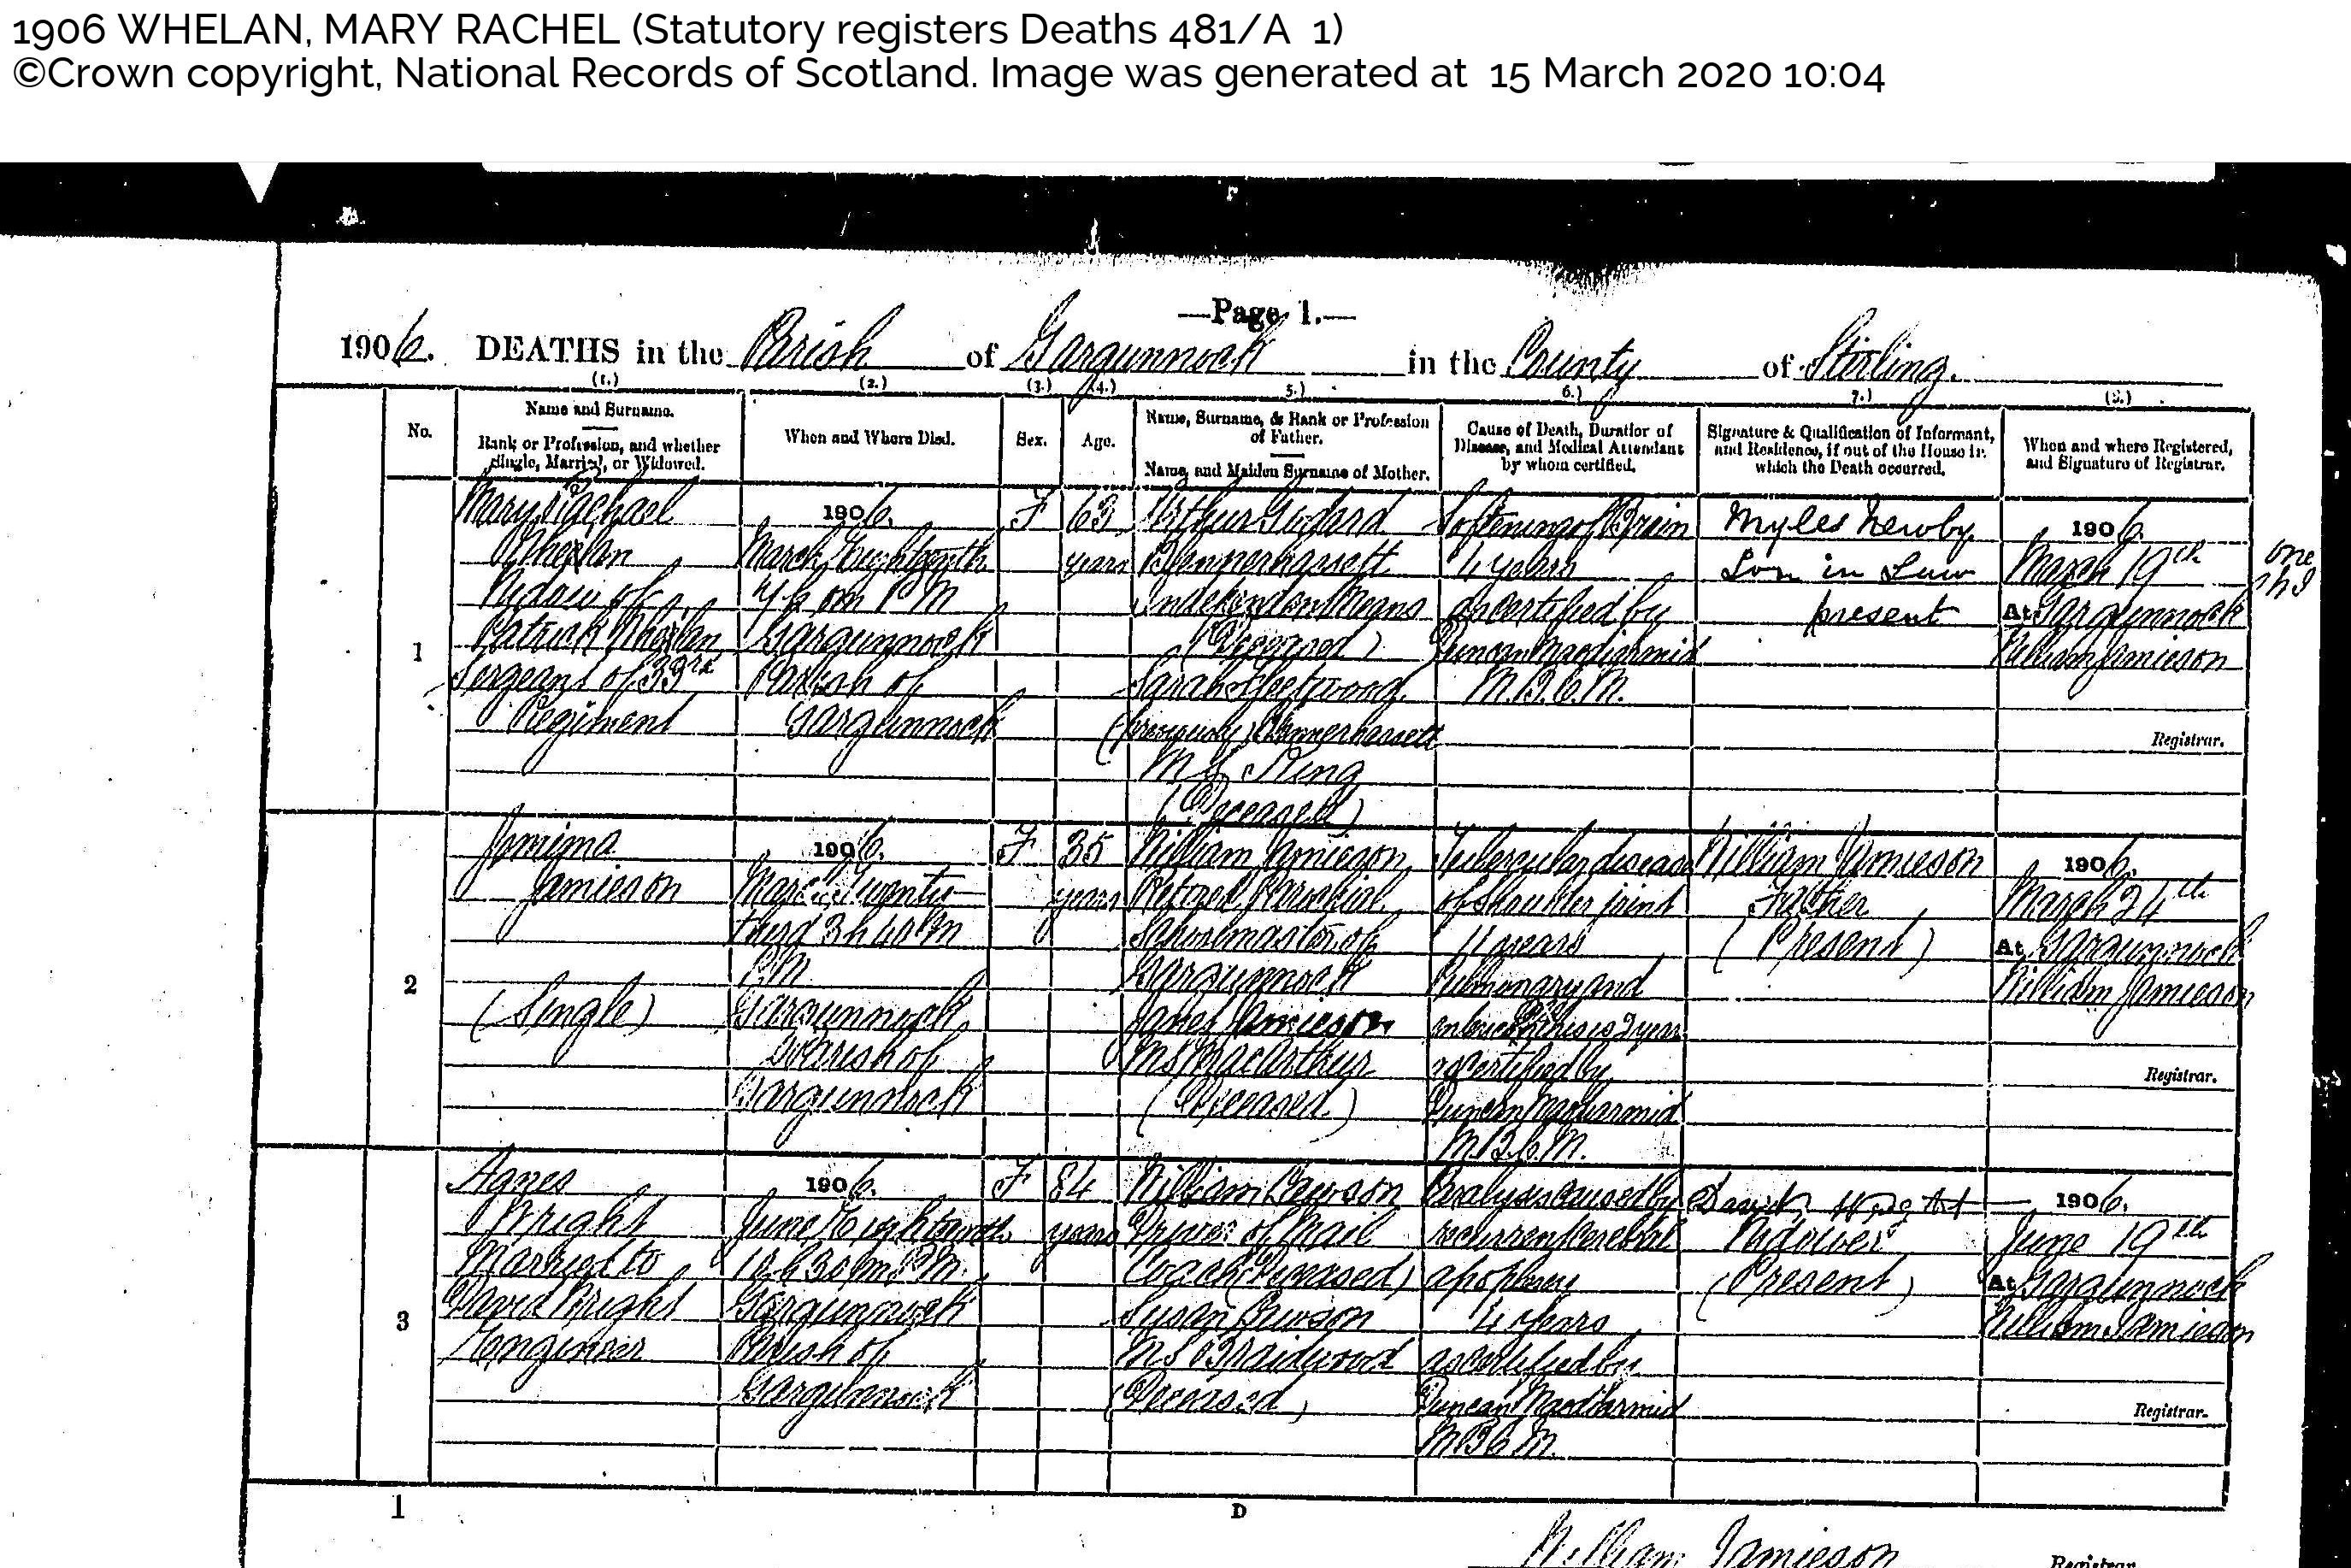 1906 WHELAN, MARY RACHEL (Statutory registers Deaths 481/A 1)
©Crown copyright, National Records of Scotland. Image was generated at 15 March 2020 10:04
—Page 1.—
1906. DEATHS in the Parish of Gargunnock in the County of Stirling.
(1.) (2.) (3.) (4.) 5.) 6.) 7.) (8.)
No.
Name and Surname.
Rank or Profession, and whether
Single, Married, or Widowed.
When and Where Died.
Sex.
Age.
Name, Surname, & Rank or Profession
of Father.
Name, and Maiden Surname of Mother.
Cause of Death, Duration of
Disease, and Medical Attendant
by whom certified.
Signature & Qualification of Informant,
and Residence, if out of the House in
which the Death occurred.
When and where Registered,
and Signature of Registrar.
1
Mary Rachael
Whelan
Widow of
Patrick Whelan
Sergeant of 33rd
Regiment
1906.
March Eighteenth
Gargunnock
Parish of
Gargunnock
F
63
years
Arthur Godard
Blennerhassett
Independent Means
(Deceased)
Sarah Fleetwood
(previously) Blennerhassett
M.S. King
(Deceased)
Softening of Brain
4 years
as certified by
Duncan Macdiarmid
M.B.C.M.
Myles Newby
Son in Law
present
1906.
March 19th
At Gargunnock
William Jamieson
Registrar.
one
2
Jemima
Jamieson
(Single)
1906.
March Twenty-
third 3h 40m
P.M.
Gargunnock
Parish of
Gargunnock
F
35
years
William Jamieson
Retired Parochial
Schoolmaster of
Gargunnock
Janet Jamieson
MS MacArthur
(Deceased)
Tubercular disease
of shoulder joint
11 years
Pulmonary and
2 years
as certified by
Duncan Macdiarmid
M.B.C.M.
William Jamieson
Father
(Present)
1906.
March 24th
At Gargunnock
William Jamieson
Registrar.
3
Agnes
Wright
Married to
David Wright
Engineer
1906.
June Eighteenth
10h 30m P.M.
Gargunnock
Parish of
Gargunnock
F
84
years
William Lawson
Driver of Mail
Coach (Deceased)
Susan Lawson
M.S. Braidwood
(Deceased)
Paralysis caused by
recurrent cerebral
apoplexy
4 years
as certified by
Duncan Macdiarmid
M.B.C.M.
David Wright
Widower
(Present)
1906.
June 19th
At Gargunnock
William Jamieson
Registrar.
1
D
William Jamieson
Registrar